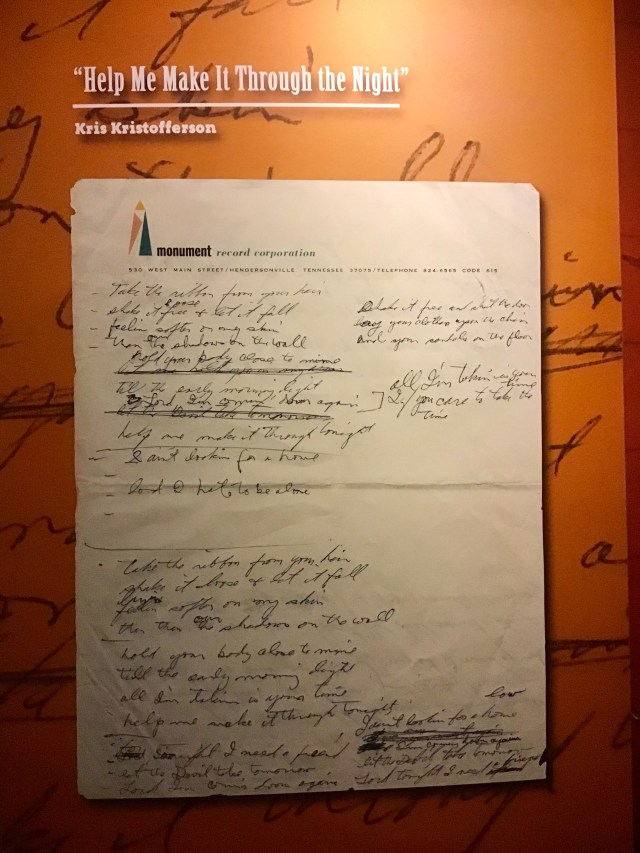 “Help Me Make It Through the Night”
Kris Kristofferson
monument record corporation
530 WEST MAIN STREET/HENDERSONVILLE, TENNESSEE 37075/TELEPHONE 824-6565 CODE 615
- Take the ribbon from your hair
- shake it free & let it fall
loose
- feelin softer on my skin
- than the shadows on the wall
hold your body close to mine
till the early morning light
Lord, I'm comin down again
let the Devil take tomorrow
help me make it through tonight
- I ain't lookin for a home
- And I hate to be alone
-
-
Shake it free
your clothes upon the chair
And your sandals on the floor
all I'm takin is your time
If you care to take the time
- Take the ribbon from your hair
shake it loose & let it fall
softer on my skin
than the shadows on the wall
hold your body close to mine
till the early morning light
all I'm takin is your time
help me make it through tonight
tonight I need a friend
let the Devil take tomorrow
Lord I'm comin down again
low
I ain't lookin for a home
let the Devil take tomorrow
Lord tonight I need